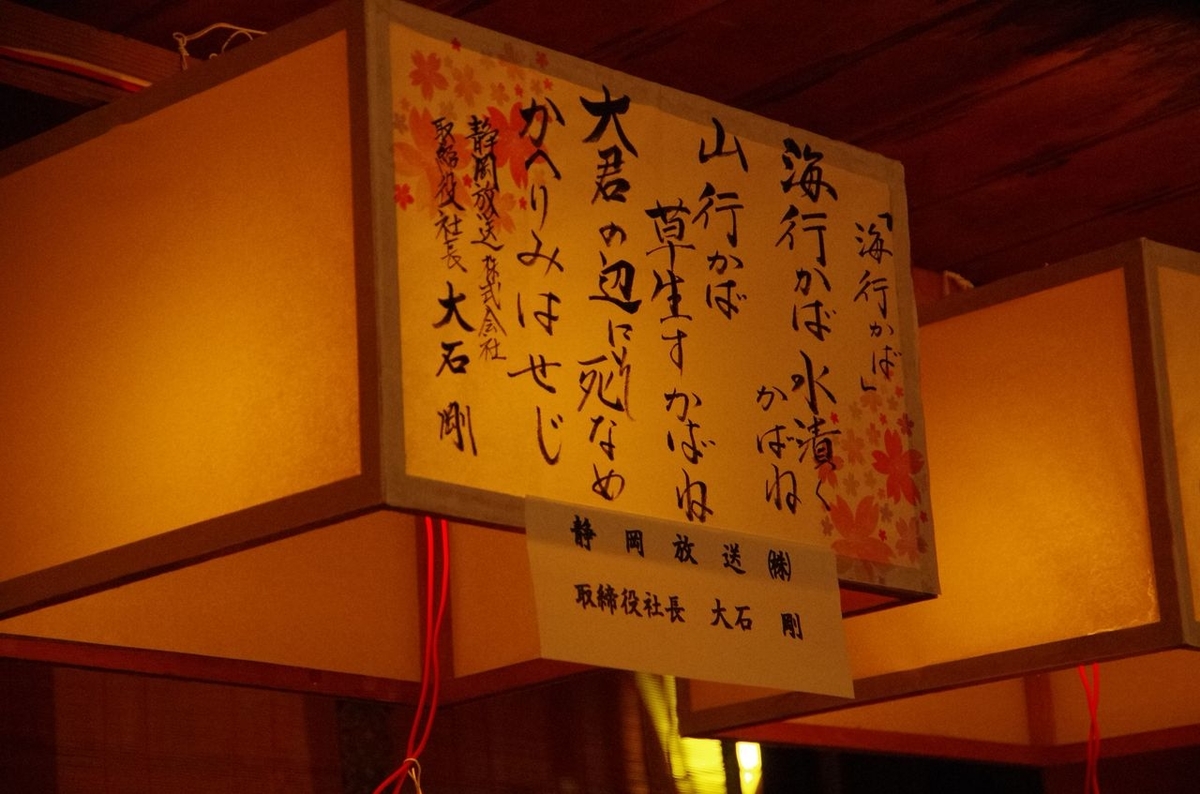 「海行かば」
海行かば水漬く
かばね
山行かば
草生すかばね
大君の辺にこそ死なめ
かへりみはせじ
静岡放送株式会社
取締役社長 大石剛
静岡放送㈱
取締役社長 大石 剛